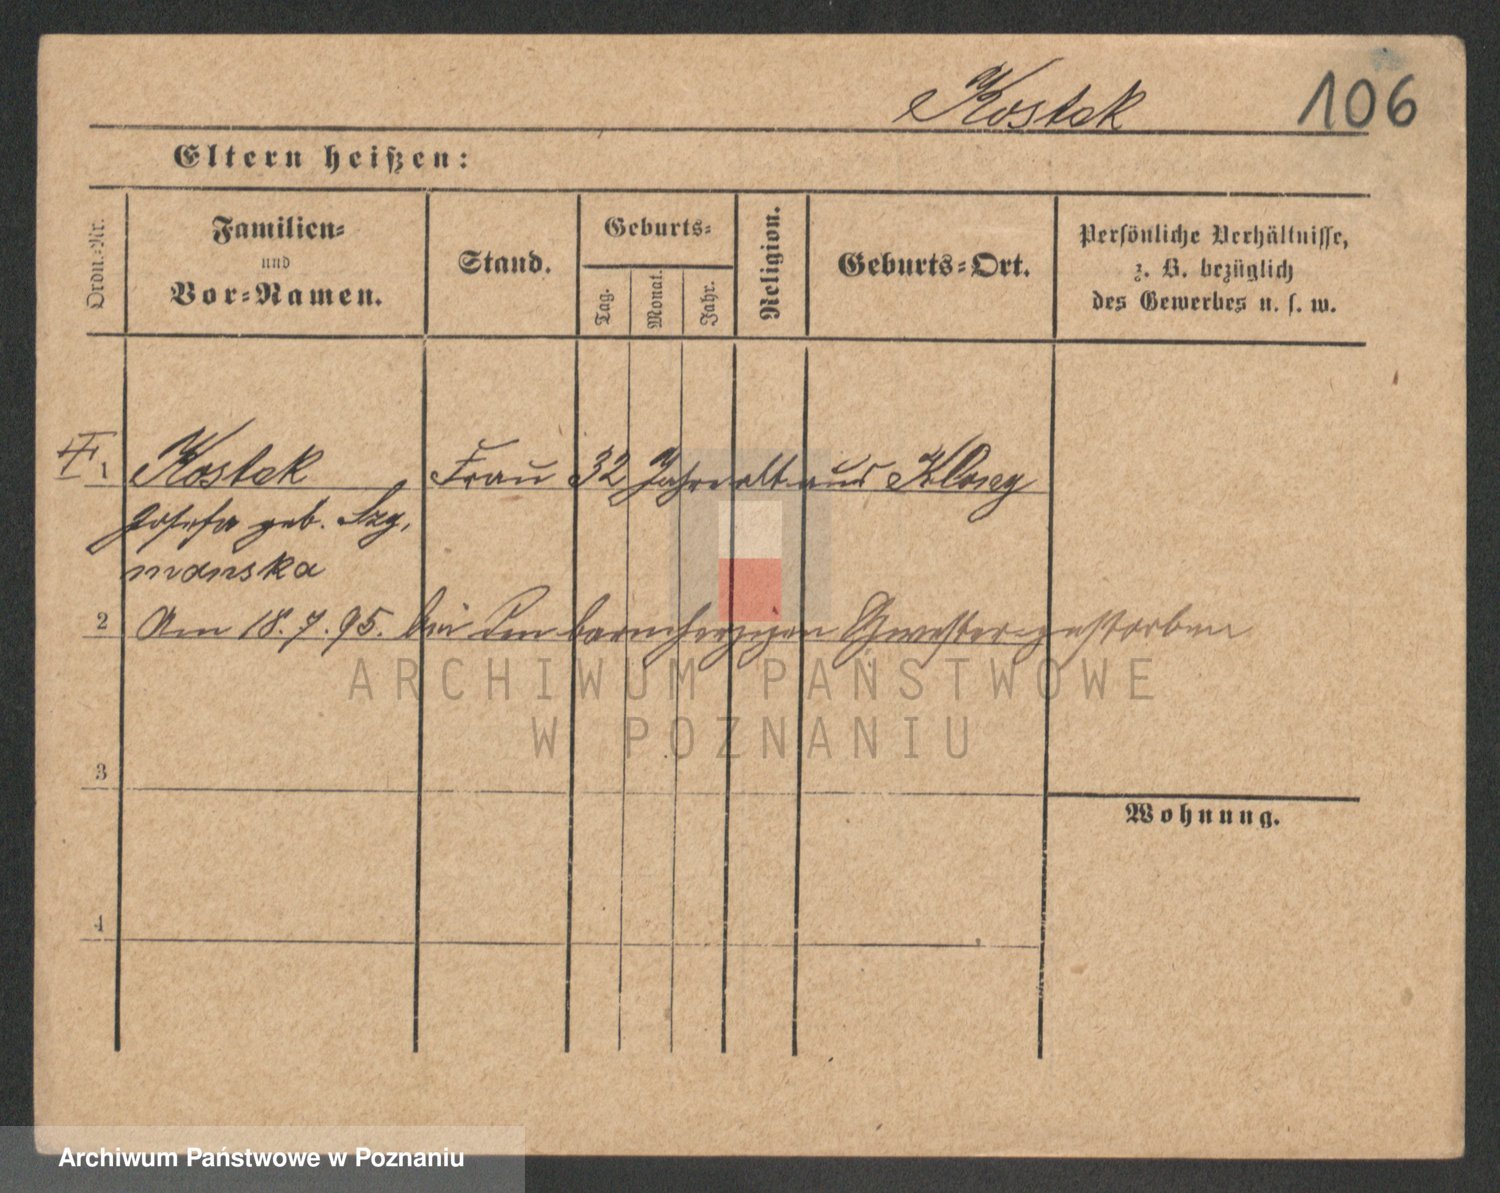 Kostek 106
Eltern heißen:
Ordn.-Nr.
Familien-
und
Vor-Namen.
Stand.
Geburts-
Tag.
Monat.
Jahr.
Religion.
Geburts-Ort.
Persönliche Verhältnisse,
z. B. bezüglich
des Gewerbes u. s. w.
1 Kostek Frau 32 Jahre alt aus
Josefa geb. Szy,
manska
2 Am 18.7.95. bei den barmherzigen gestorben
ARCHIWUM PAŃSTWOWE
W POZNANIU
3
Wohnung.
4
Archiwum Państwowe w Poznaniu